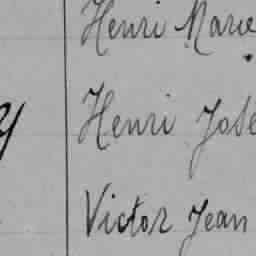 Henri Marie
Henri José
Victor Jean